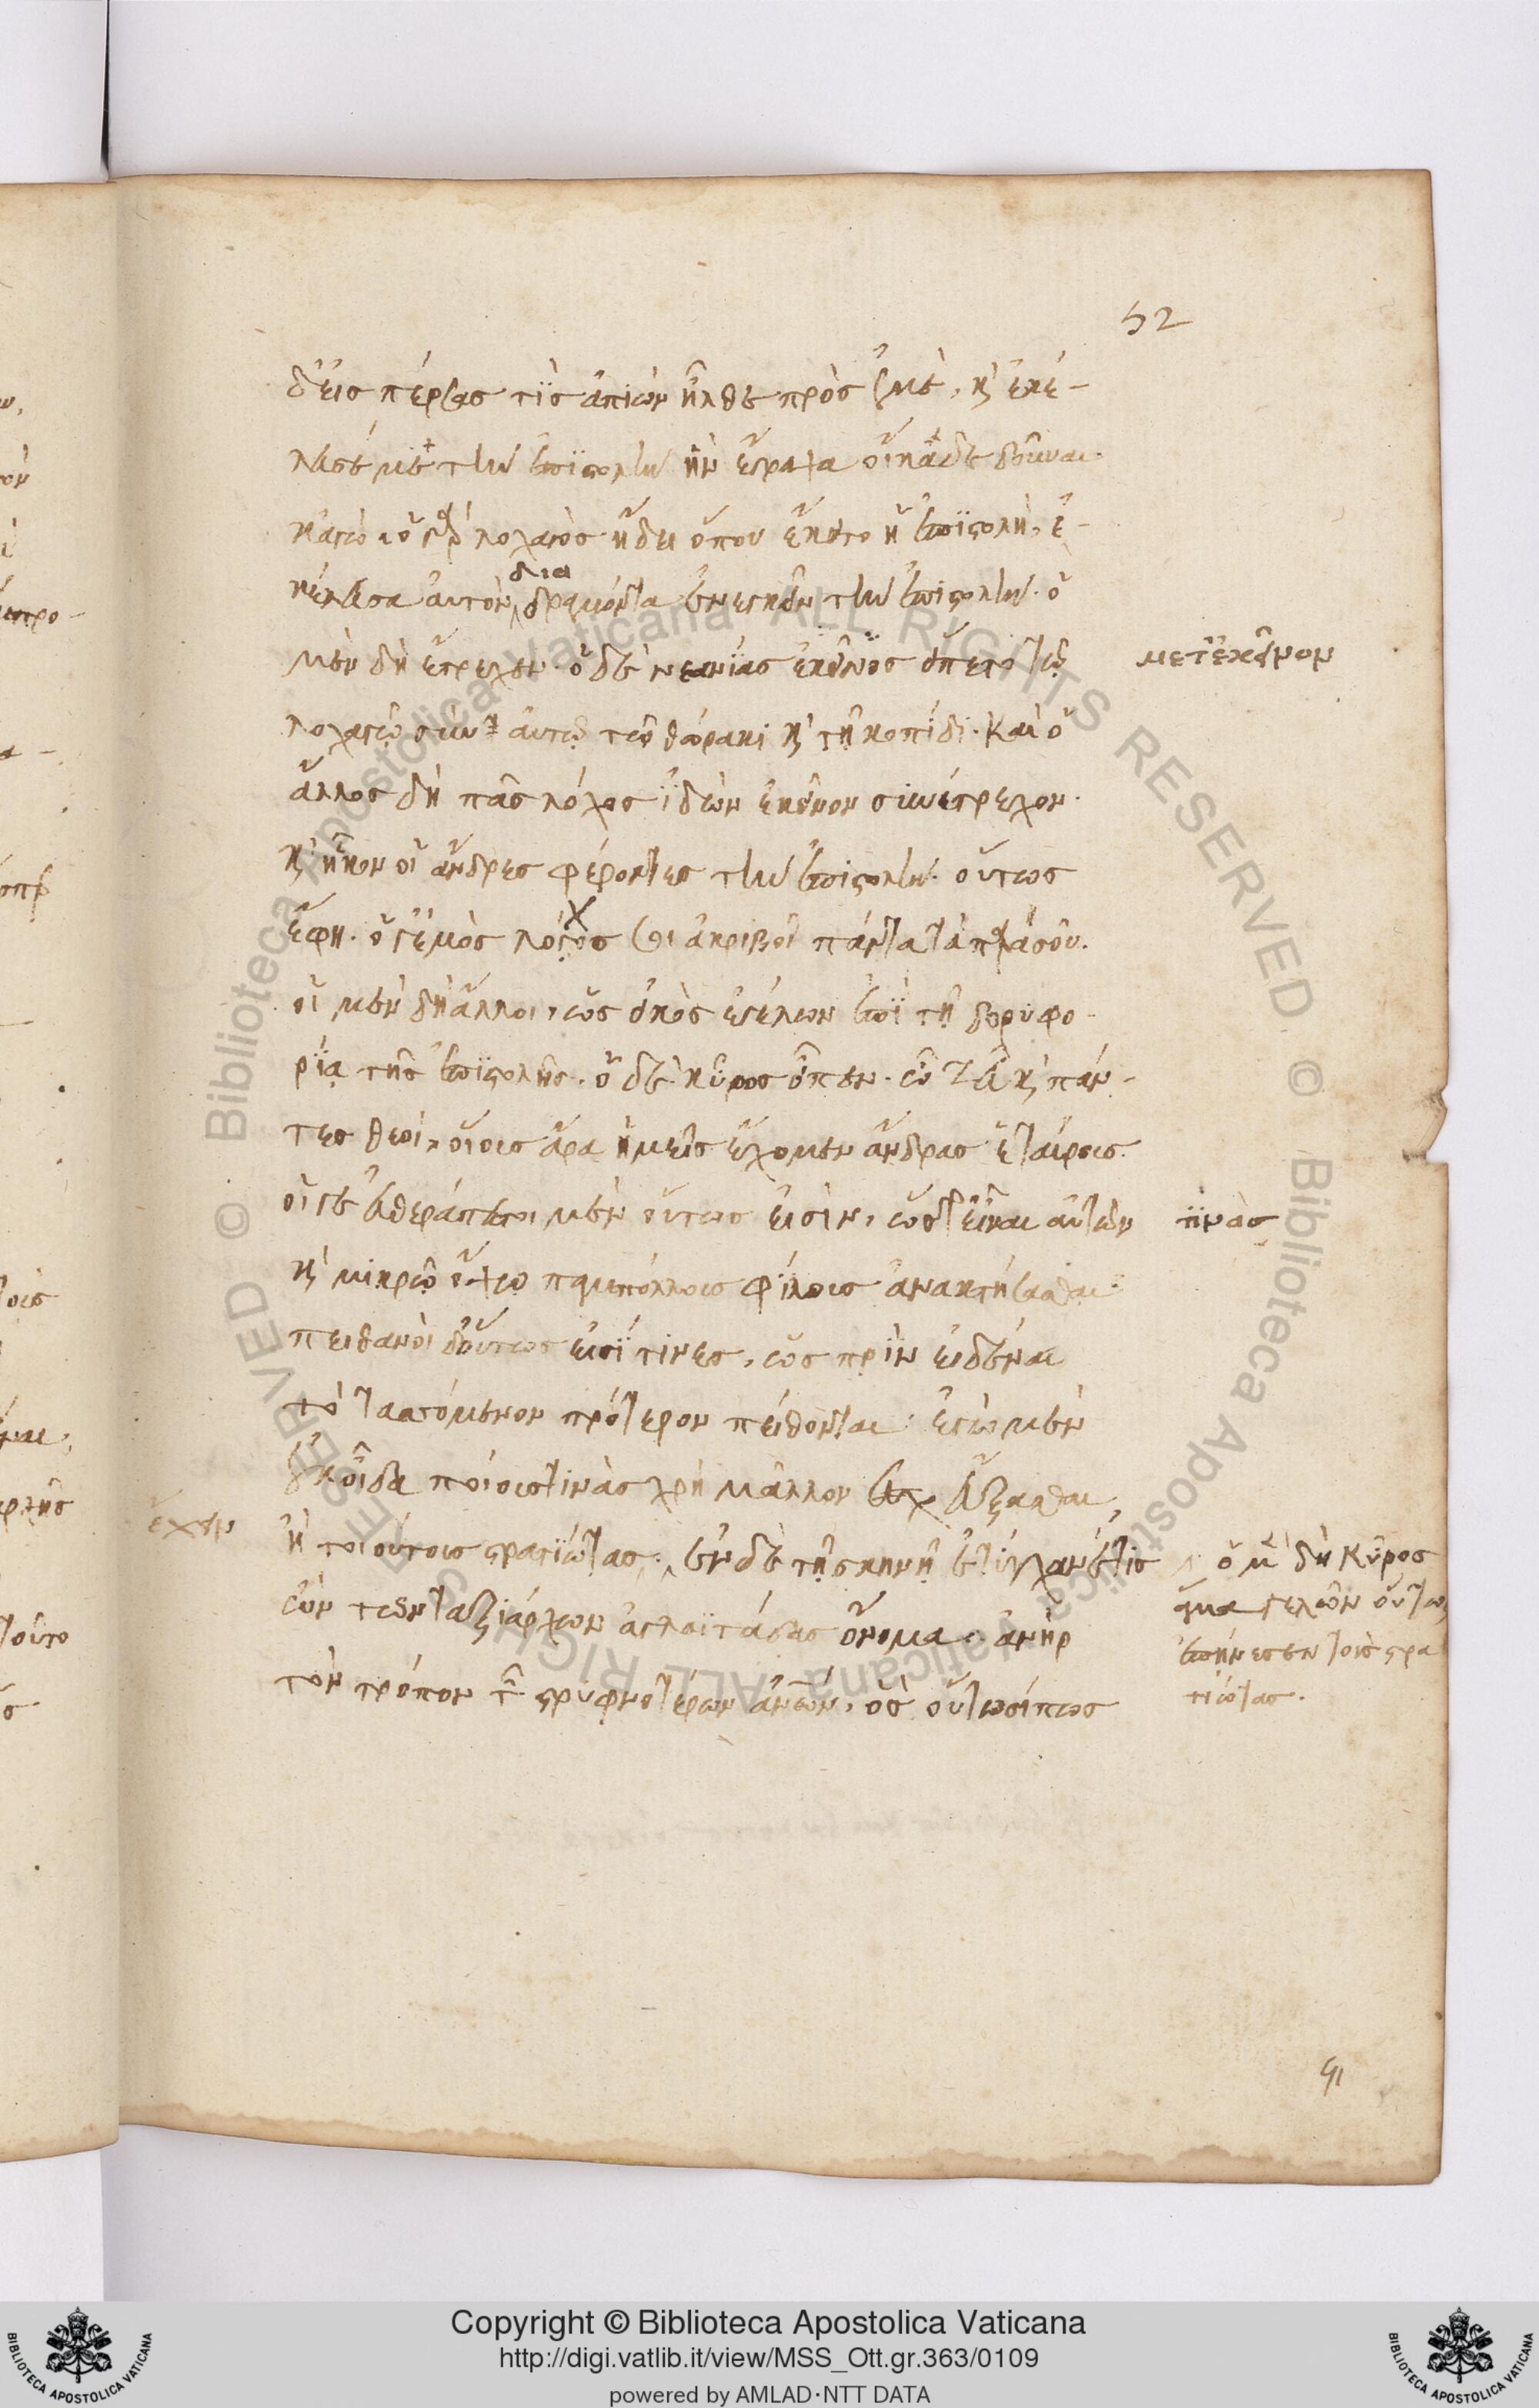 52
δ' εἰς πέρσας τὶς ἀπιὼν ἦλθε πρὸς ἐμὲ, κ̀ ἐκέ-
λευσέ με τὴν ἐπιστολὴν ἣν ἔγραψα οἴκαδε δοῦναι.
κἀγὼ, ὁ γὰρ λοχαγὸς ἤδει ὅπου ἔκειτο ἡ ἐπιστολὴ, ἐ-
κέλευσα αὐτὸν δραμόντα ἐνεγκεῖν τὴν ἐπιστολήν. ὁ
δια
μὲν δὴ ἔτρεχεν. ὁ δὲ νεανίας ἐκεῖνος εἵπετο τῷ
μετ' ἐκεῖνον
λοχαγῷ σὺν αὐτῷ τῷ θώρακι κ̀ τῇ κοπίδι. καὶ ὁ
ἄλλος δὴ πᾶς λόχος ἰδὼν ἐκεῖνον συνέτρεχον.
κ̀ ἧκον οἱ ἄνδρες φέροντες τὴν ἐπιστολήν. οὕτως
ἔφη. ὅ γ' ἐμὸς λόχος σοι ἀκριβοῖ πάντα τὰ παρὰ σοῦ.
οἱ μὲν δὴ ἄλλοι, ὡς εἰκὸς ἐγέλων ἐπὶ τῇ δορυφο-
ρίᾳ τῆς ἐπιστολῆς. ὁ δὲ κῦρος εἶπεν. ὦ ζεῦ κ̀ πάν-
τες θεοὶ, οἵους ἄρα ἡμεῖς ἔχομεν ἄνδρας ἑταίρους.
οἵ γε εὐθεράπευτοι μὲν οὕτως εἰσὶν, ὥστ' εἶναι αὐτῶν
τινὰς
κ̀ μικρῷ ὄψῳ παμπόλλους φίλους ἀνακτήσασθαι.
πειθανοὶ δ' οὕτως εἰσί τινες, ὡς πρὶν εἰδέναι
τὸ ταττόμενον πρότερον πείθονται. ἐγὼ μὲν
οὐκ οἶδα ποίους τινὰς χρὴ μᾶλλον εὔξασθαι
ἔχειν
ἢ τοιούτους στρατιώτας. ἐν δὲ τῇ σκηνῇ ἐτύγχανέ τις
ὁ μὲν δὴ Κῦρος
ἅμα γελῶν οὕτως
ἐπῄνεσεν τοὺς στρα
τιώτας.
ὢν τῶν ταξιάρχων ἀγλαϊτάδας ὄνομα. ἀνὴρ
τὸν τρόπον τῶν στρυφνοτέρων ἀνῶν, ὃς οὑτωσίπως
91
Copyright © Biblioteca Apostolica Vaticana
http://digi.vatlib.it/view/MSS_Ott.gr.363/0109
powered by AMLAD·NTT DATA